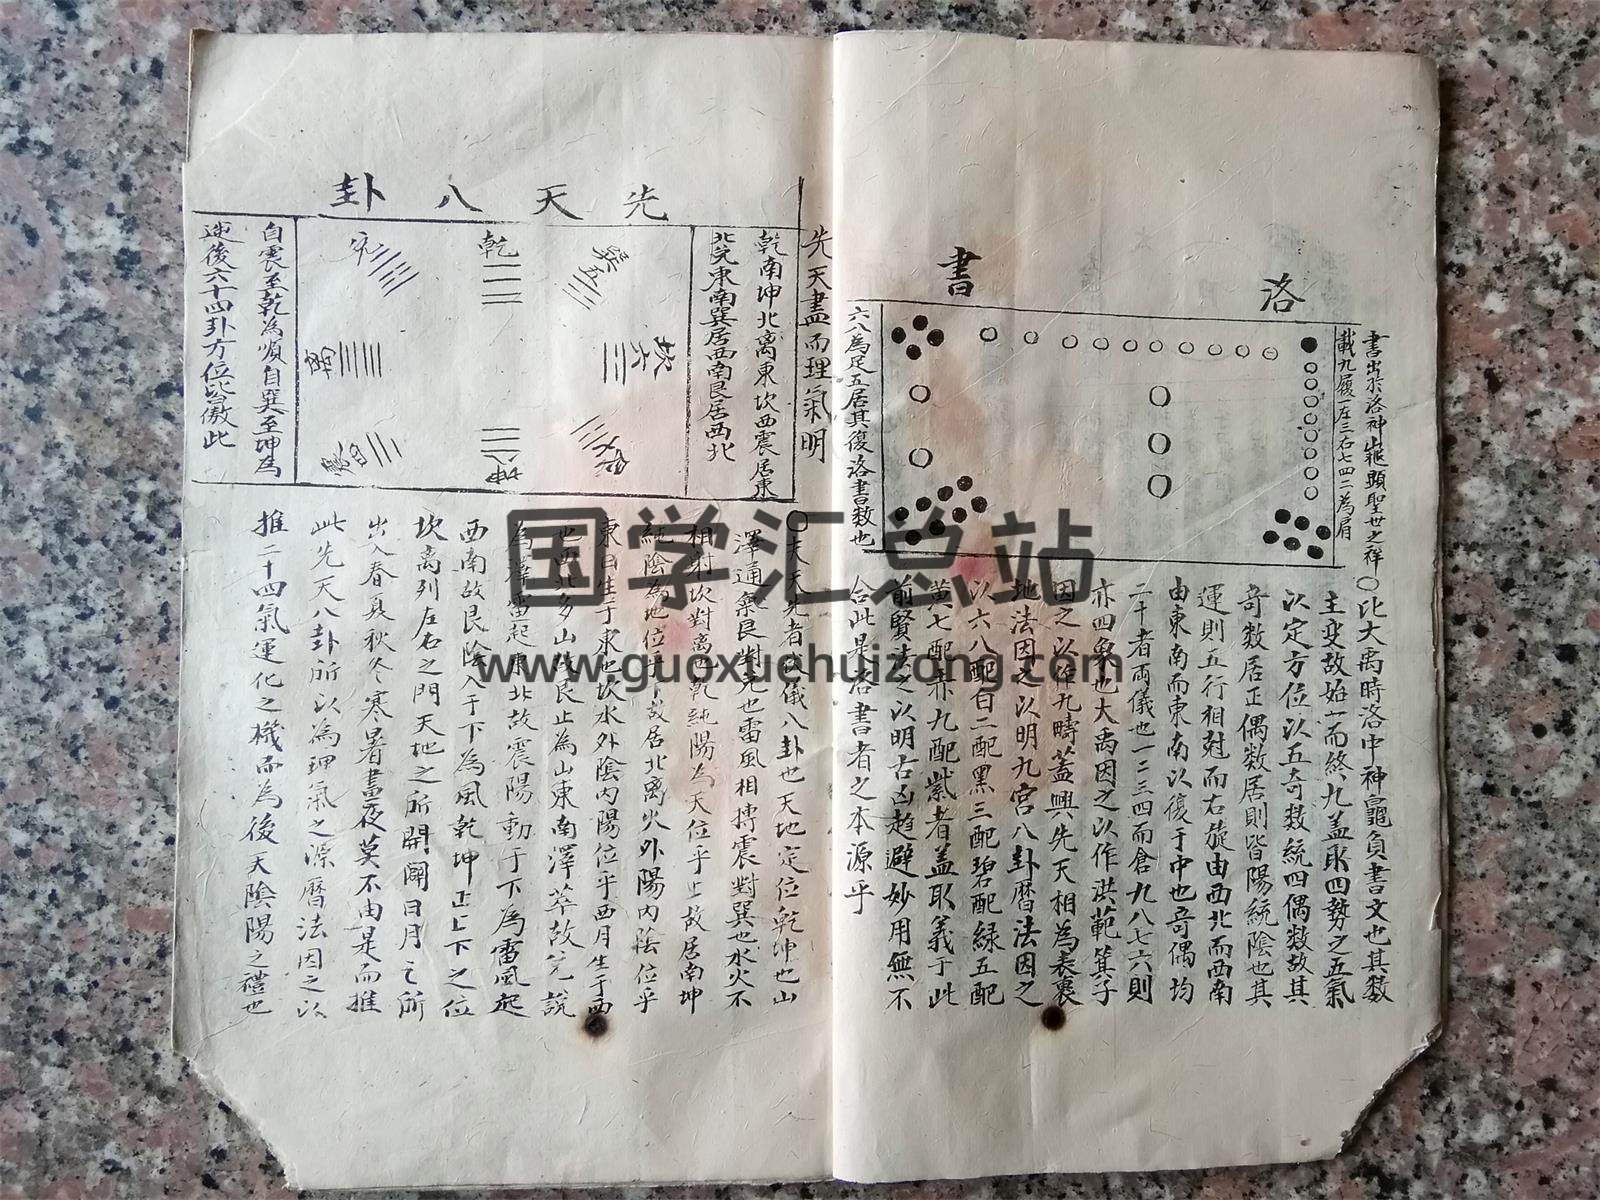 洛書
書出於洛神龜顯聖世之祥
戴九履一左三右七四二為肩
六八為足五居其復洛書数也
〇比大禹時洛中神龜負書文也其数
主变故始一而終九盖取四勢之五氣
以定方位以五奇数統四偶数故其
奇数居正偶数居則皆陽統陰也其
運則五行相尅而右旋由西北而西南
由東南而東南以復于中也奇偶均
二十者兩儀也一二三四而倉九八七六則
亦四象也大禹因之以作洪範箕子
因之以作九疇蓋興先天相為表裏
地法因之以明九宮八卦曆法因之
以六八配白二配黑三配碧四配綠五配
黄七配赤九配紫者盖取義于此
前賢法之以明吉凶趋避妙用無不
合此是洛書者之本源乎
先天畫而理氣明
先天八卦
乾南坤北离東坎西震居東
北兌東南巽居西南艮居西北
巽五
乾一
兌
坎六
坤八
震四
自震至乾為順自巽至坤為
逆後六十四卦方位皆倣此
〇先天者兩儀八卦也天地定位乾坤也山
澤通氣艮對兌也雷風相搏震對巽也水火不
相射坎對離也乾純陽為天位乎上故居南坤
純陰為地位于下故居北离火外陽内陰位乎
東日生于東也坎水外陰内陽位乎西月生于西
也西北多山故艮止為山東南澤萃故兌說
為澤雷起東北故震陽動于下為雷風起
西南故艮陰入于下為風乾坤正上下之位
坎离列左右之門天地之所開闢日月之所
出入春夏秋冬寒暑晝夜莫不由是而推
此先天八卦所以為理氣之源曆法因之以
推二十四氣運化之機而為後天陰陽之禮也
国学汇总站
www.guoxuehuizong.com